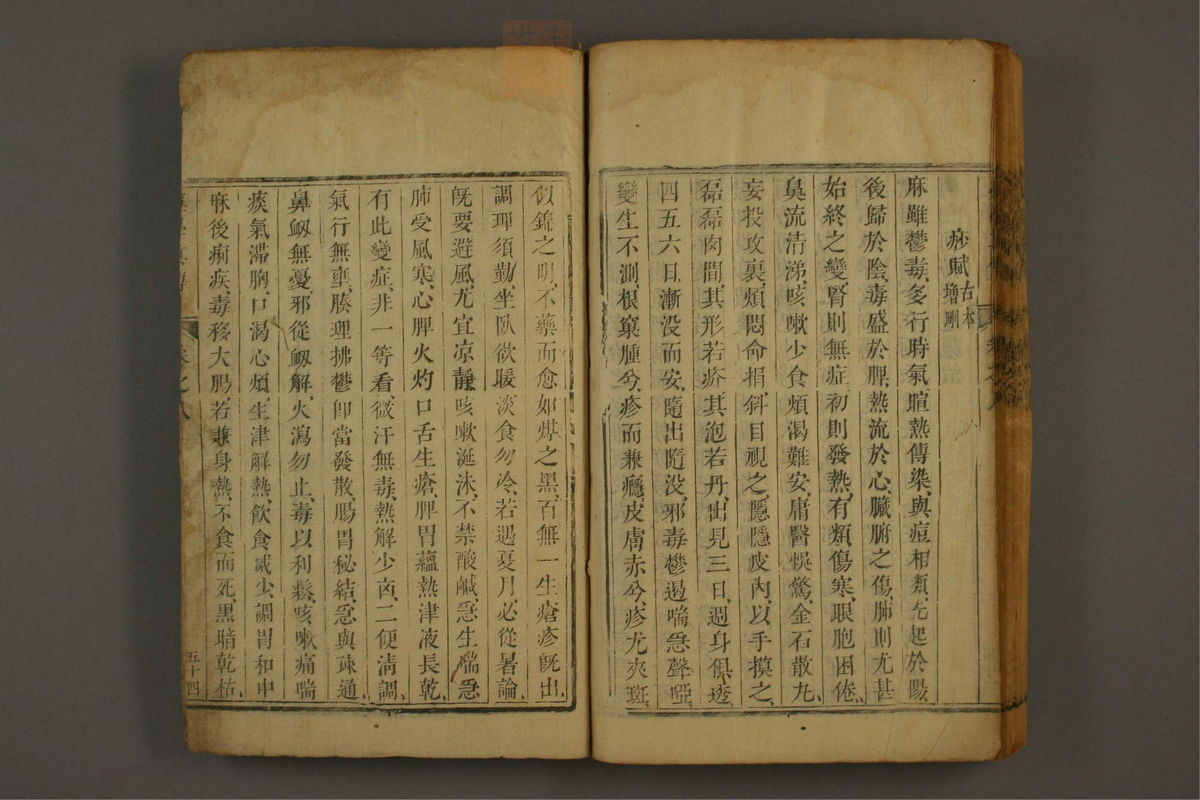 痧賦 古本增刪
麻雖鬱毒、多行時氣、暄熱傳染、與痘相類、先起於陽
後歸於陰、毒盛於脾、熱流於心、臟腑之傷、肺則尤甚
始終之變、腎則無症、初則發熱、有類傷寒、眼胞困倦、
鼻流清涕、咳嗽少食、煩渴難安、庸醫悞驚、金石散丸、
妄投攻裏、煩悶命捐、斜目視之、隱隱皮內、以手摸之、
磊磊肉間、其形若疥、其泡若丹、出見三日、遍身俱透
四五六日、漸没而安、隨出隨没、邪毒鬱遏、喘急聲啞、
變生不測、根窠腫兮、疹而兼癮、皮膚赤兮、疹尤夾斑、
似錦之明、不藥而愈、如煤之黑、百無一生、瘡疹既出、
調理須勤、坐臥欲暖、淡食勿冷、若遇夏月、必從暑論、
既要避風、尤宜凉靜、咳嗽涎沫、不禁酸鹹、忽生喘急
肺受風寒、心脾火灼、口舌生瘡、脾胃蘊熱、津液長乾、
有此變症、非一等看、微汗無毒、熱解少安、二便清調、
氣行無壅、腠理拂鬱、卽當發散、腸胃秘結、急與疎通
鼻衂無憂、邪從衂解、火瀉勿止、毒以利鬆、咳嗽痛喘
痰氣滯胸、口渴心煩、生津解熱、飲食減少、調胃和中
麻後痢疾、毒移大腸、若兼身熱、不食而死、黑暗乾枯、
卷之八
五十四